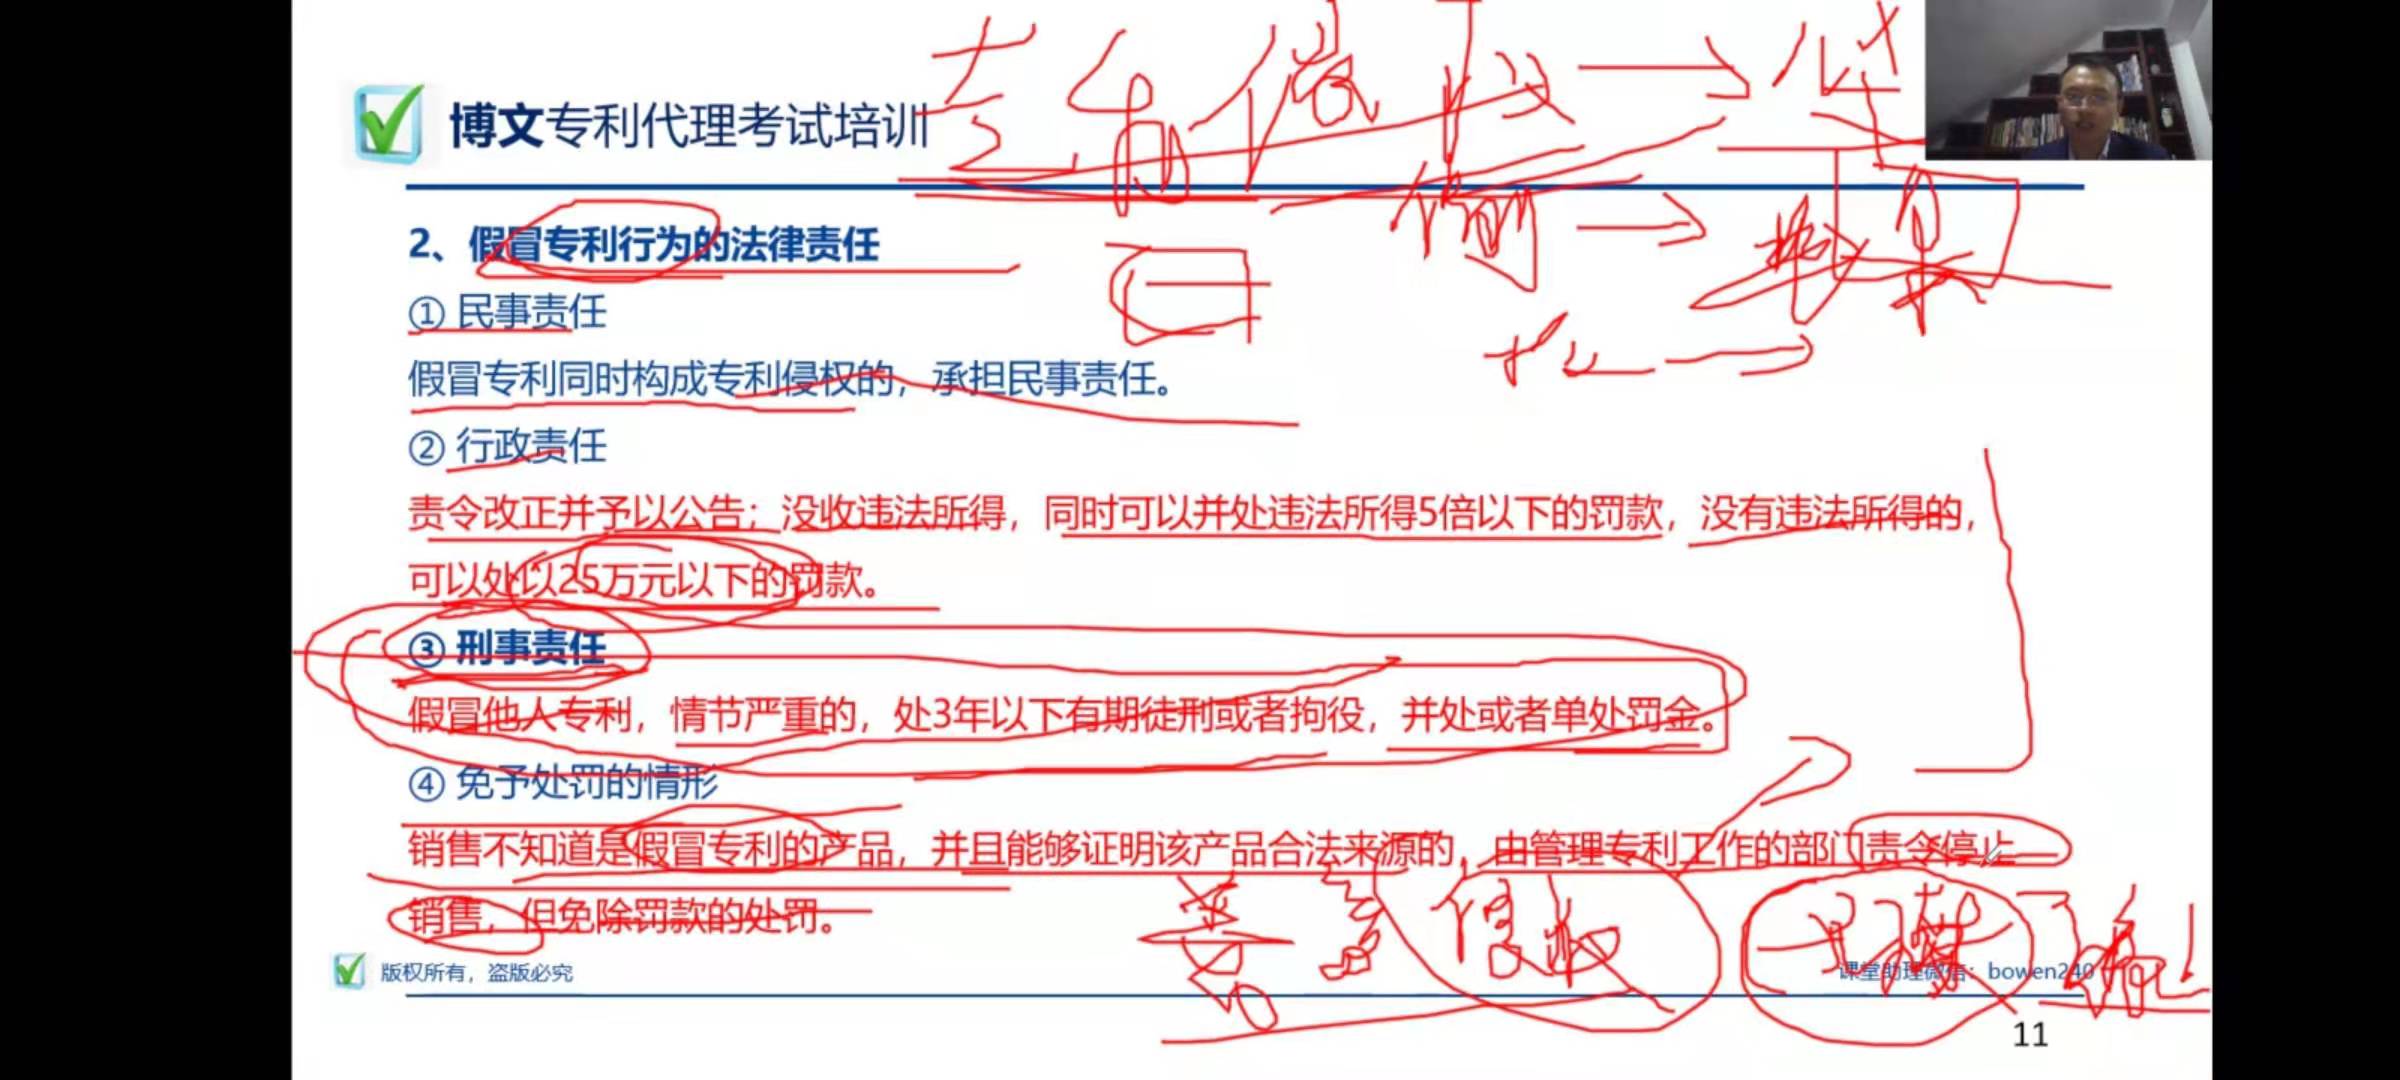 博文专利代理考试培训
2、假冒专利行为的法律责任
① 民事责任
假冒专利同时构成专利侵权的，承担民事责任。
② 行政责任
责令改正并予以公告；没收违法所得，同时可以并处违法所得5倍以下的罚款，没有违法所得的，
可以处以25万元以下的罚款。
③ 刑事责任
假冒他人专利，情节严重的，处3年以下有期徒刑或者拘役，并处或者单处罚金。
④ 免予处罚的情形
销售不知道是假冒专利的产品，并且能够证明该产品合法来源的，由管理专利工作的部门责令停止
销售，但免除罚款的处罚。
版权所有，盗版必究
课堂助理微信：bowen240
11